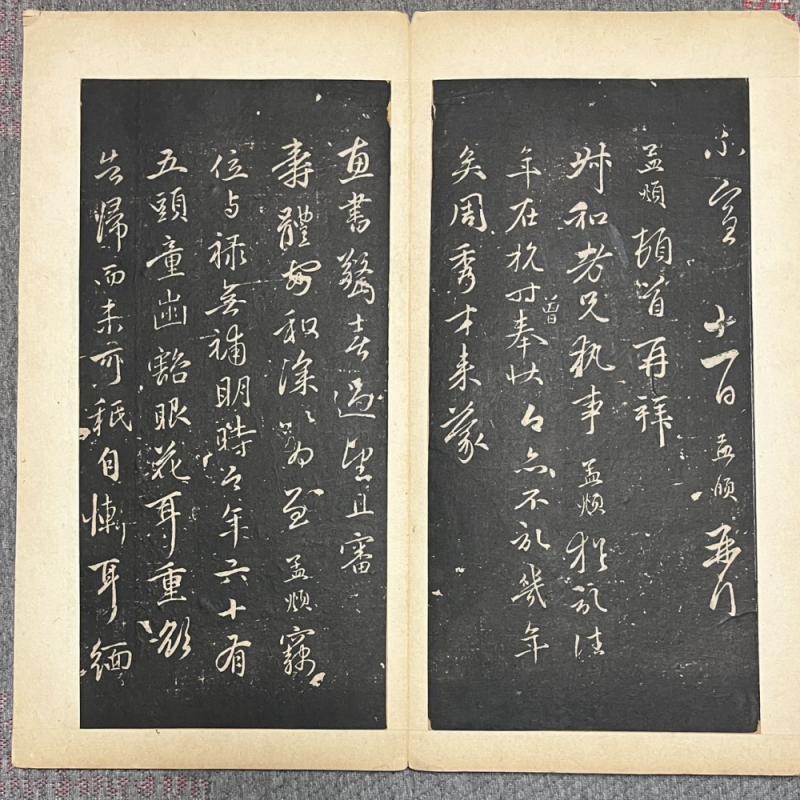 不宣 十一日 孟頫 再行
孟頫 頓首再拜
叔和老兄執事 孟頫 猶記往
年在杭時曾奉状々亦不記幾年
矣周秀才来蒙
惠書驚喜過望且審
壽體安和深以為慰 孟頫 竊
位与禄無補明時今年六十有
五頭童齒豁眼花耳重欲
告歸而未可秖自慚耳緬